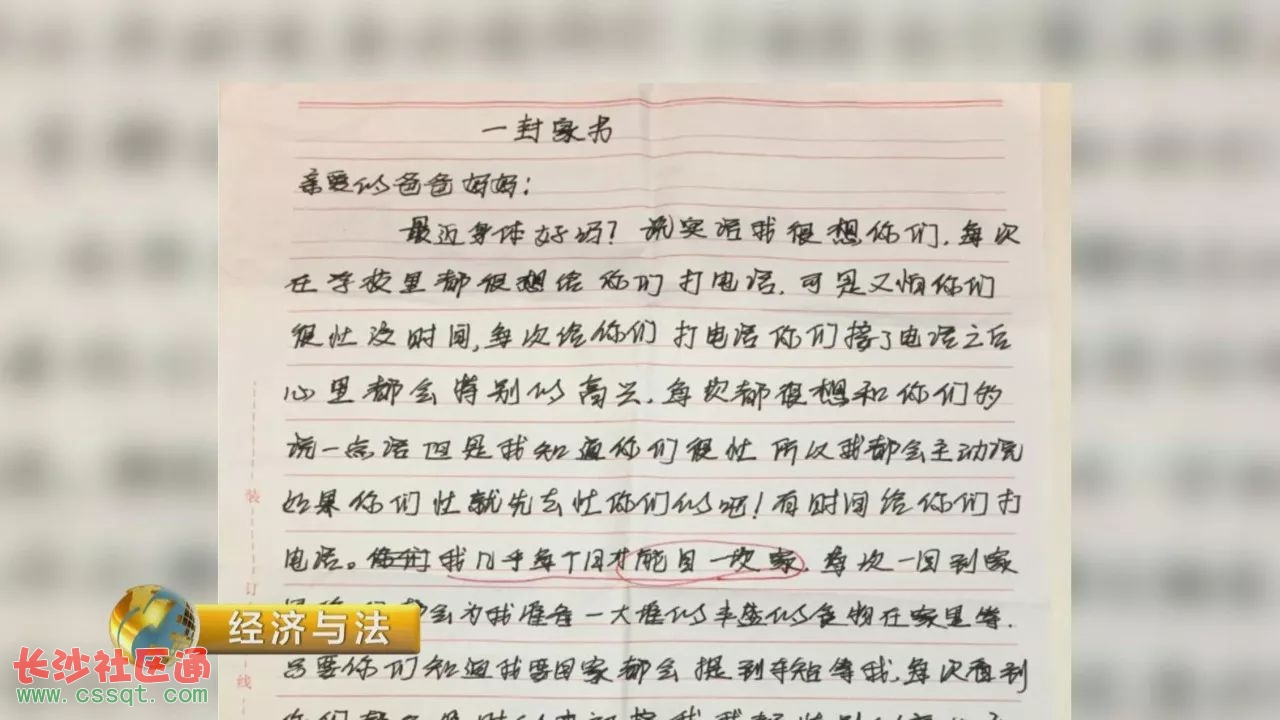 一封家书
亲爱的爸爸妈妈：
最近身体好吗？说实话我很想你们，每次
在学校里都很想给你们打电话，可是又怕你们
很忙没时间，每次给你们打电话你们接了电话之后
心里都会特别的高兴，每次都很想和你们的
说一点话但是我知道你们很忙所以我都会主动说
如果你们忙就先去忙你们的吧！有时间给你们打
电话。你们我几乎每个月才能回一次家，每次一回到家
都会为我准备一大堆的丰盛的食物在家里等，
只要你们知道我要回家都会提到等我，每次看到
装
订
线
经济与法
长沙社区通
www.cssqt.com